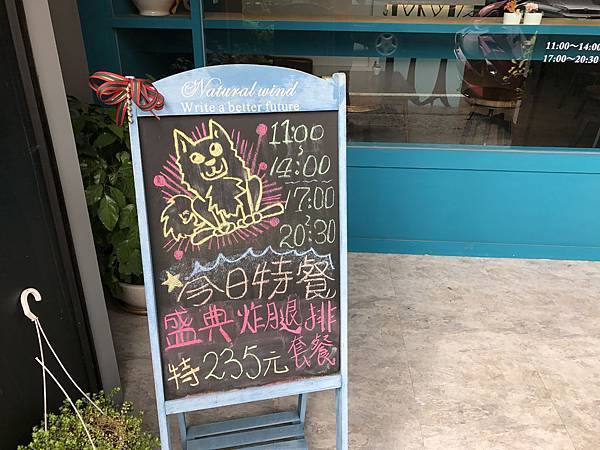 Natural wind
Write a better future
11:00
~
14:00
17:00
~
20:30
今日特餐
盛典炸腿排
套餐
特235元
11:00~14:00
17:00~20:30